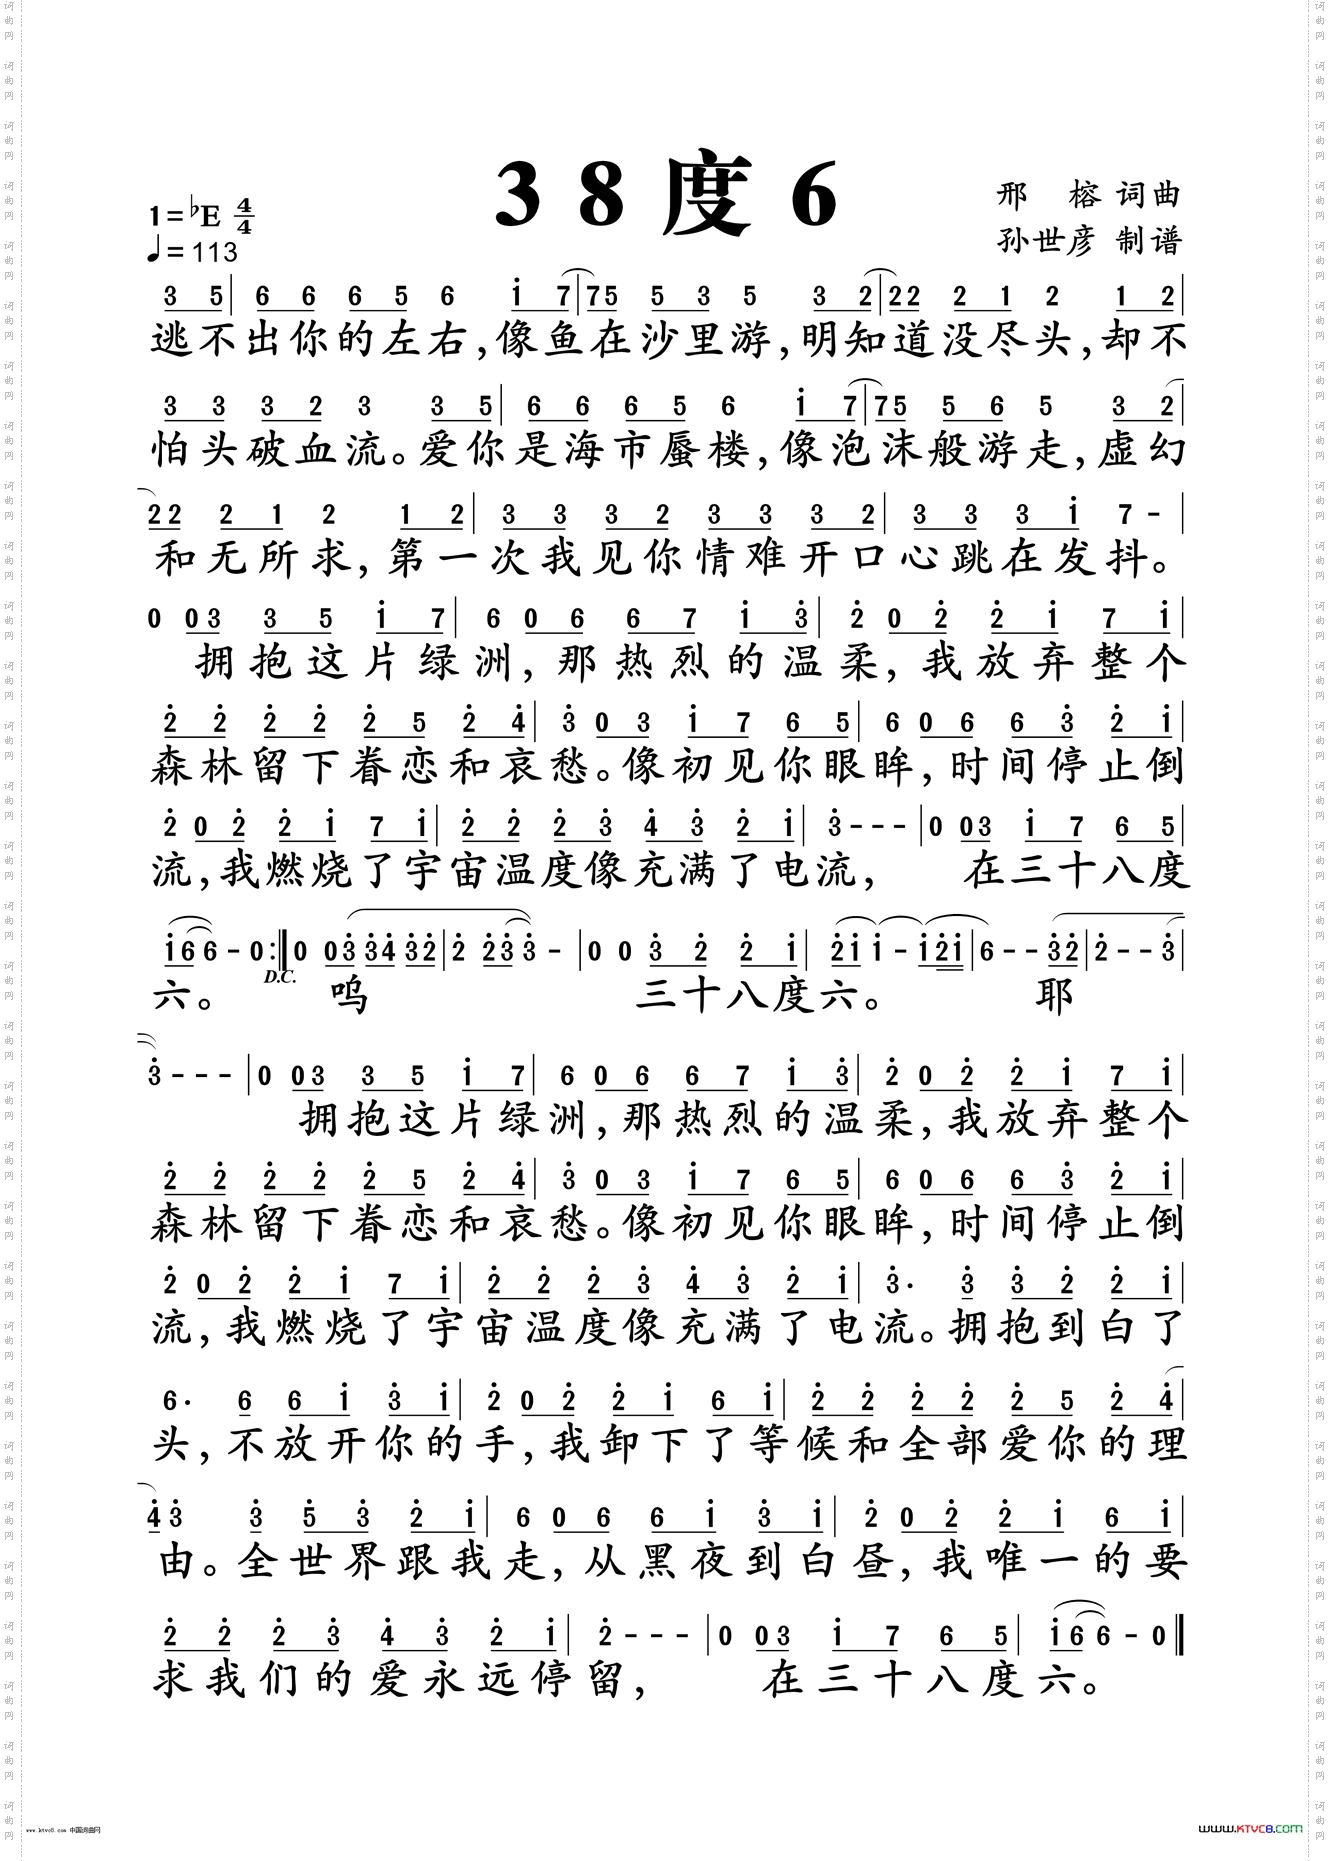 38度6
1=♭E 4/4
♩=113
邢 榕 词曲
孙世彦 制谱
3 5 | 6 6 6 5 6 i 7 | 7 5 5 3 5 3 2 | 2 2 2 1 2 1 2 |
逃不出你的左右,像鱼在沙里游,明知道没尽头,却不
3 3 3 2 3 3 5 | 6 6 6 5 6 i 7 | 7 5 5 6 5 3 2 |
怕头破血流。爱你是海市蜃楼,像泡沫般游走,虚幻
2 2 2 1 2 1 2 | 3 3 3 2 3 3 3 2 | 3 3 3 i 7 - |
和无所求,第一次我见你情难开口心跳在发抖。
0 0 3 3 5 i 7 | 6 0 6 6 7 i 3 | 2 0 2 2 i 7 i |
拥抱这片绿洲,那热烈的温柔,我放弃整个
2 2 2 2 2 5 2 4 | 3 0 3 i 7 6 5 | 6 0 6 6 3 2 i |
森林留下眷恋和哀愁。像初见你眼眸,时间停止倒
2 0 2 2 i 7 i | 2 2 2 3 4 3 2 i | 3 - - - | 0 0 3 i 7 6 5 |
流,我燃烧了宇宙温度像充满了电流, 在三十八度
i 6 6 - 0 :| 0 0 3 3 4 3 2 | 2 2 3 3 - | 0 0 3 2 2 i | 2 i i - i 2 i | 6 - - 3 2 | 2 - - 3 |
D.C.
六。 呜 三十八度六。 耶
3 - - - | 0 0 3 3 5 i 7 | 6 0 6 6 7 i 3 | 2 0 2 2 i 7 i |
拥抱这片绿洲,那热烈的温柔,我放弃整个
2 2 2 2 2 5 2 4 | 3 0 3 i 7 6 5 | 6 0 6 6 3 2 i |
森林留下眷恋和哀愁。像初见你眼眸,时间停止倒
2 0 2 2 i 7 i | 2 2 2 3 4 3 2 i | 3 · 3 3 2 2 i |
流,我燃烧了宇宙温度像充满了电流。拥抱到白了
6 · 6 6 i 3 i | 2 0 2 2 i 6 i | 2 2 2 2 2 5 2 4 |
头,不放开你的手,我卸下了等候和全部爱你的理
4 3 3 5 3 2 i | 6 0 6 6 i 3 i | 2 0 2 2 i 6 i |
由。全世界跟我走,从黑夜到白昼,我唯一的要
2 2 2 3 4 3 2 i | 2 - - - | 0 0 3 i 7 6 5 | i 6 6 - 0 ‖
求我们的爱永远停留, 在三十八度六。
www.ktvc8.com 中国词曲网
www.KTVC8.com
词曲网